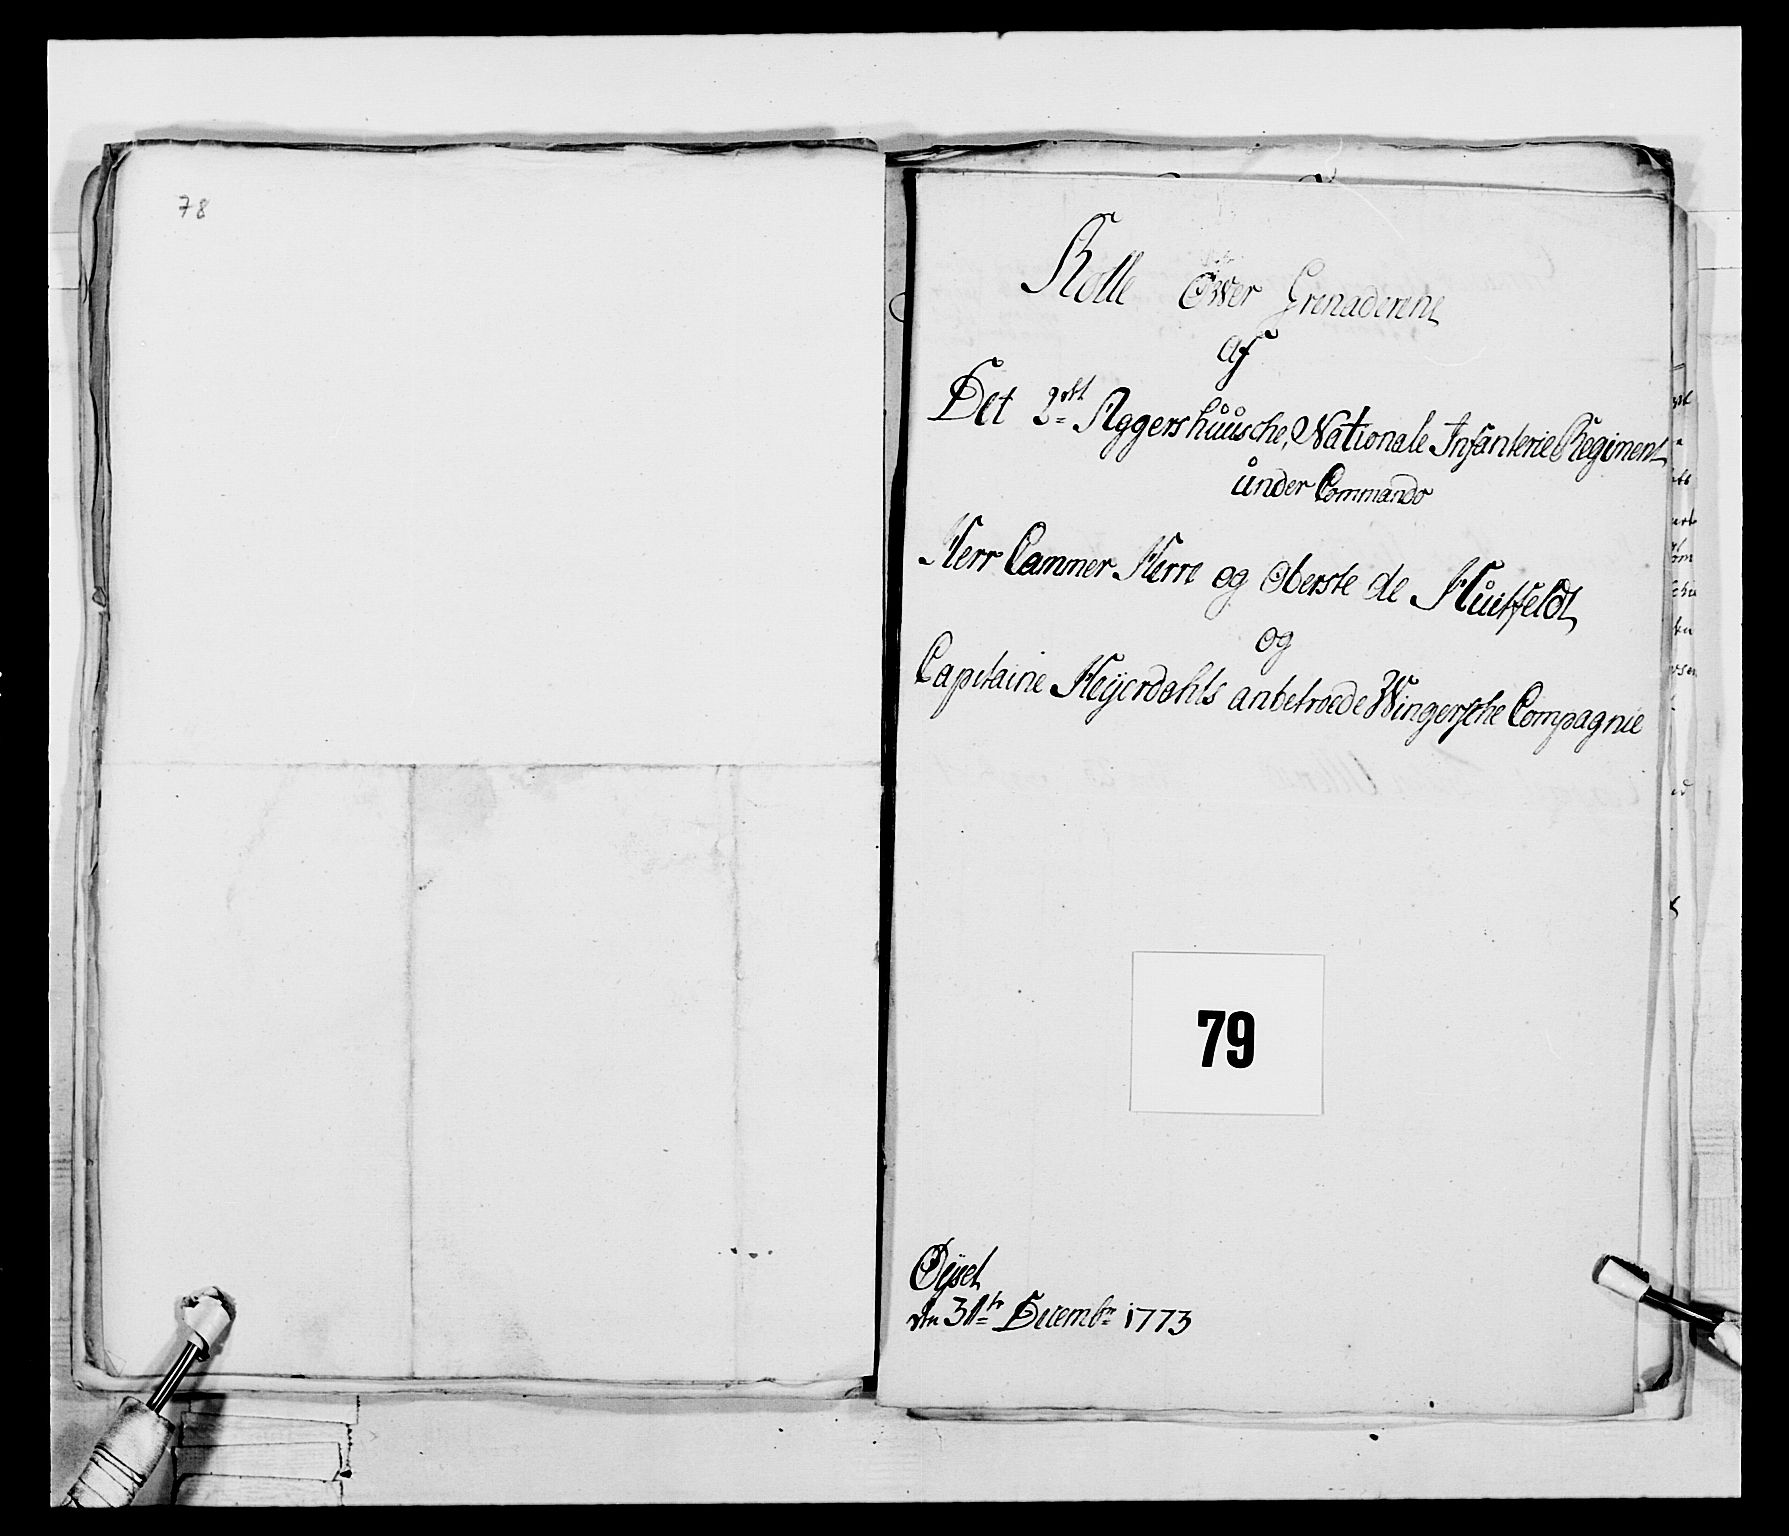 78
Rolle Over Grenaderene
af
Det 2det Aggershuusche, Nationale Infanterie Regiment
under Commando
Herr Cammer Herre og Oberste de Huitfeldt
og
Capitaine Heyerdahls anbetroede Wingersche Compagnie
79
Öyset
den 31te Decembr 1773